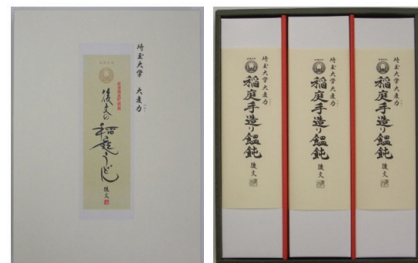 埼玉大学 大麦力
後文の
稲庭うどん
後文
埼玉大学大麦力
稲庭手造り饂飩
後文
埼玉大学大麦力
稲庭手造り饂飩
後文
埼玉大学大麦力
稲庭手造り饂飩
後文